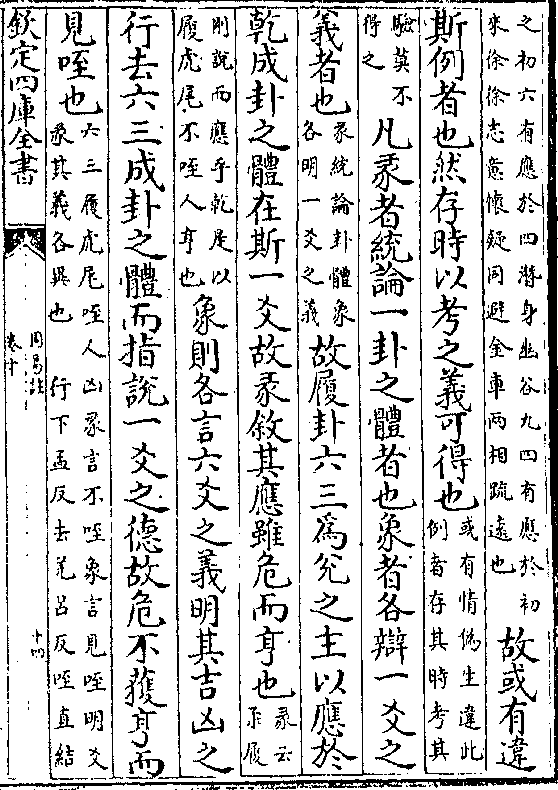 之初六有應於四潛身幽谷九四有應於初
來徐徐志意懷疑同避金車兩相疏遠也
故或有違
斯例者也然存時以考之義可得也
或有情偽生違此
例者存其時考其
驗莫不
得之
凡彖者統論一卦之體者也象者各辯一爻之
義者也
彖統論卦體象
各明一爻之義
故履卦六三為兊之主以應於
乾成卦之體在斯一爻故彖敘其應雖危而亨也
彖云
柔履
剛說而應乎乾是以
履虎尾不咥人亨也
象則各言六爻之義明其吉凶之
行去六三成卦之體而指說一爻之德故危不獲亨而
見咥也
六三履虎尾咥人凶彖言不咥象言見咥明爻
彖其義各異也　行下孟反去羌呂反咥直結
欽定四庫全書
周易註
卷十
十四